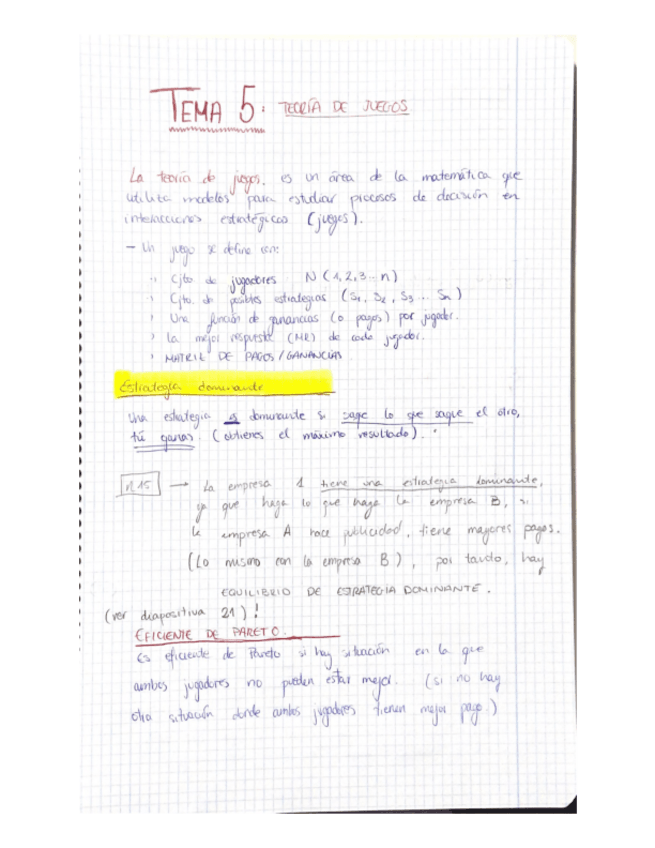 TEMA 5: TEORÍA DE JUEGOS
La teoría de juegos, es un área de la matemática que
utiliza modelos para estudiar procesos de decisión en
interacciones estratégicas (juegos).
- Un juego se define con:
Cjto de jugadores N (1,2,3...n)
Cjto. de posibles estrategias (S1, S2, S3... Sn)
Una función de ganancias (o pagos) por jugador.
La mejor respuesta (MR) de cada jugador.
MATRIZ DE PAGOS/GANANCIAS
Estrategia dominante
Una estrategia es dominante si saque lo que saque el otro,
tú ganas. (obtienes el máximo resultado).
→ La empresa 1 tiene una estrategia dominante,
ya que haga lo que haga la empresa B, si
la empresa A hace publicidad, tiene mayores pagos.
(Lo mismo con la empresa B), por tanto, hay
EQUILIBRIO DE ESTRATEGIA DOMINANTE.
(ver diapositiva 21)!
EFICIENTE DE PARETO
Es eficiente de Pareto si hay situación en la que
ambos jugadores no pueden estar mejor. (si no hay
otra situación donde ambos jugadores tienen mejor pago.)